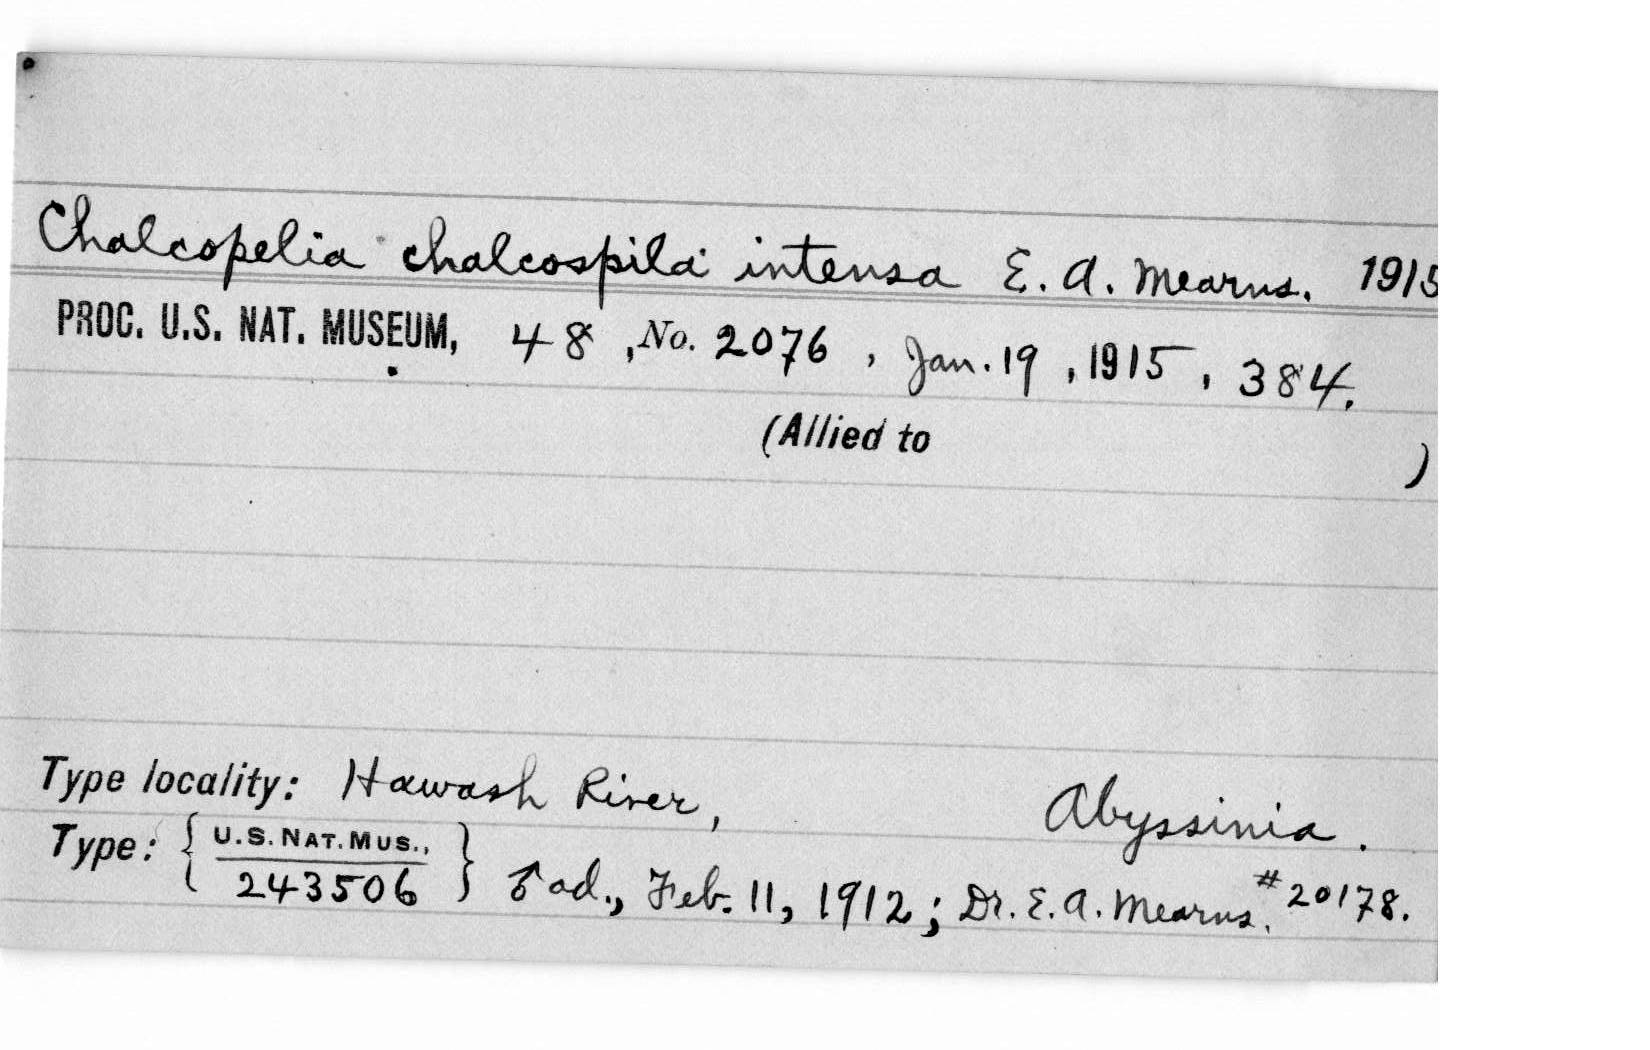 Chalcopelia chalcospila intensa E. A. Mearns. 1915
PROC. U.S. NAT. MUSEUM, 48, No. 2076, Jan. 19, 1915, 384.
(Allied to )
Type locality: Hawash River, Abyssinia.
Type: { U.S. NAT. MUS., 243506 } ♂ ad., Feb. 11, 1912; Dr. E. A. Mearns. #20178.